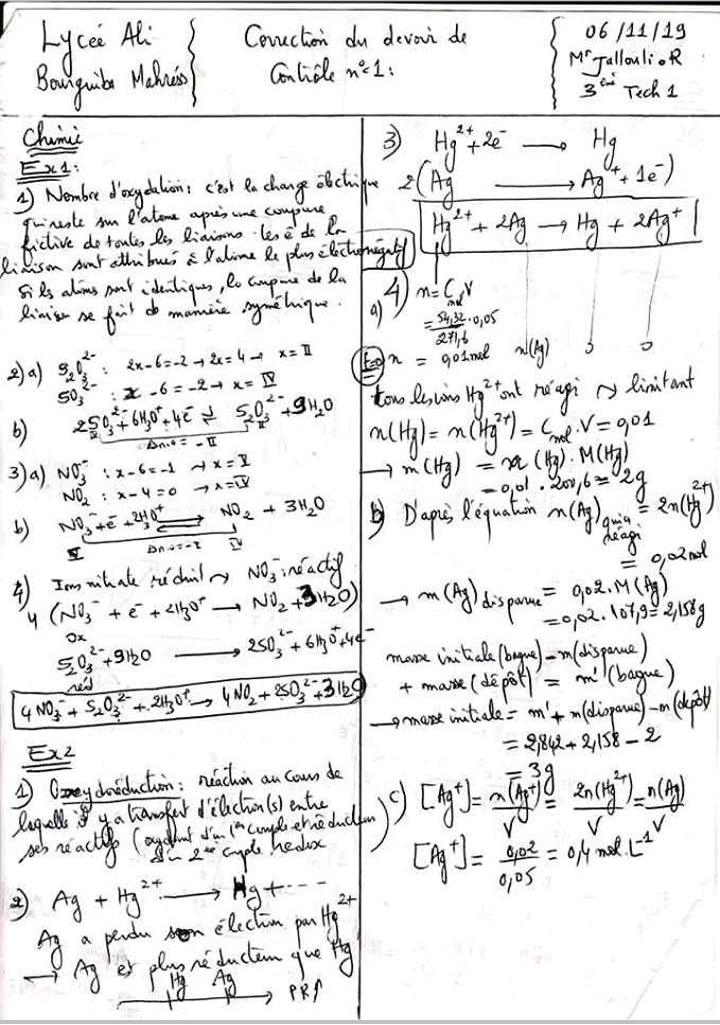 Lycée Ali
Bourguiba Mahrès
Correction du devoir de
Contrôle n°1:
06/11/19
Mr Jallouli.R
3ème Tech 1
Chimie
Ex1:
1) Nombre d'oxydation: c'est la charge électrique
qui reste sur l'atome après une coupure
fictive de toutes les liaisons. les é de la
liaison sont attribués à l'atome le plus électronégatif
Si les atomes sont identiques, la coupure de la
liaison se fait de manière symétrique.
2) a) S₂O₃²⁻ : 2x-6=-2 → 2x=4 → x=II
SO₃²⁻ : x-6=-2 → x=IV
b) 2SO₃²⁻ + 6H₃O⁺ + 4e⁻ ⇌ S₂O₃²⁻ + 9H₂O
Δn.o = -II
3) a) NO₃⁻ : x-6=-1 → x=V
NO₂ : x-4=0 → x=IV
b) NO₃⁻ + e⁻ + 2H₃O⁺ ⇌ NO₂ + 3H₂O
V Δn.o=-I IV
4) Ions nitrate réduit → NO₃⁻: réactif
4 (NO₃⁻ + e⁻ + 2H₃O⁺ → NO₂ + 3H₂O)
Ox
S₂O₃²⁻ + 9H₂O → 2SO₃²⁻ + 6H₃O⁺ + 4e⁻
réd
4NO₃⁻ + S₂O₃²⁻ + 2H₃O⁺ → 4NO₂ + 2SO₃²⁻ + 3H₂O
Ex2
1) Oxydoréduction: réaction au cours de
laquelle il y a transfert d'électron(s) entre
ses réactifs (oxydant d'un 1er couple et réducteur
d'un 2ème couple redox)
2) Ag + Hg²⁺ → Hg + ----
Ag a perdu son électron par Hg²⁺
→ Ag est plus réducteur que Hg
Hg Ag
PR↑
3) Hg²⁺ + 2e⁻ → Hg
2(Ag → Ag⁺ + 1e⁻)
Hg²⁺ + 2Ag → Hg + 2Ag⁺
4) n = C mol V
a) = 54,32/271,6 · 0,05
t=0 n = 0,01mol n(Ag) 0 0
tous les ions Hg²⁺ ont réagi → limitant
n(Hg) = n(Hg²⁺) = C mol . V = 0,01
→ m(Hg) = n(Hg) . M(Hg)
= 0,01 . 200,6 = 2g
b) D'après l'équation n(Ag) qui a réagi = 2n(Hg²⁺)
= 0,02mol
→ m(Ag) disparue = 0,02 . M(Ag)
= 0,02 . 107,9 = 2,158g
masse initiale (bague) - m(disparue)
+ masse (dépôt) = m'(bague)
→ masse initiale = m' + m(disparue) - m(dépôt)
= 2,842 + 2,158 - 2
= 3g
c) [Ag⁺] = n(Ag⁺)/V = 2n(Hg²⁺)/V = n(Ag)/V
[Ag⁺] = 0,02/0,05 = 0,4 mol.L⁻¹